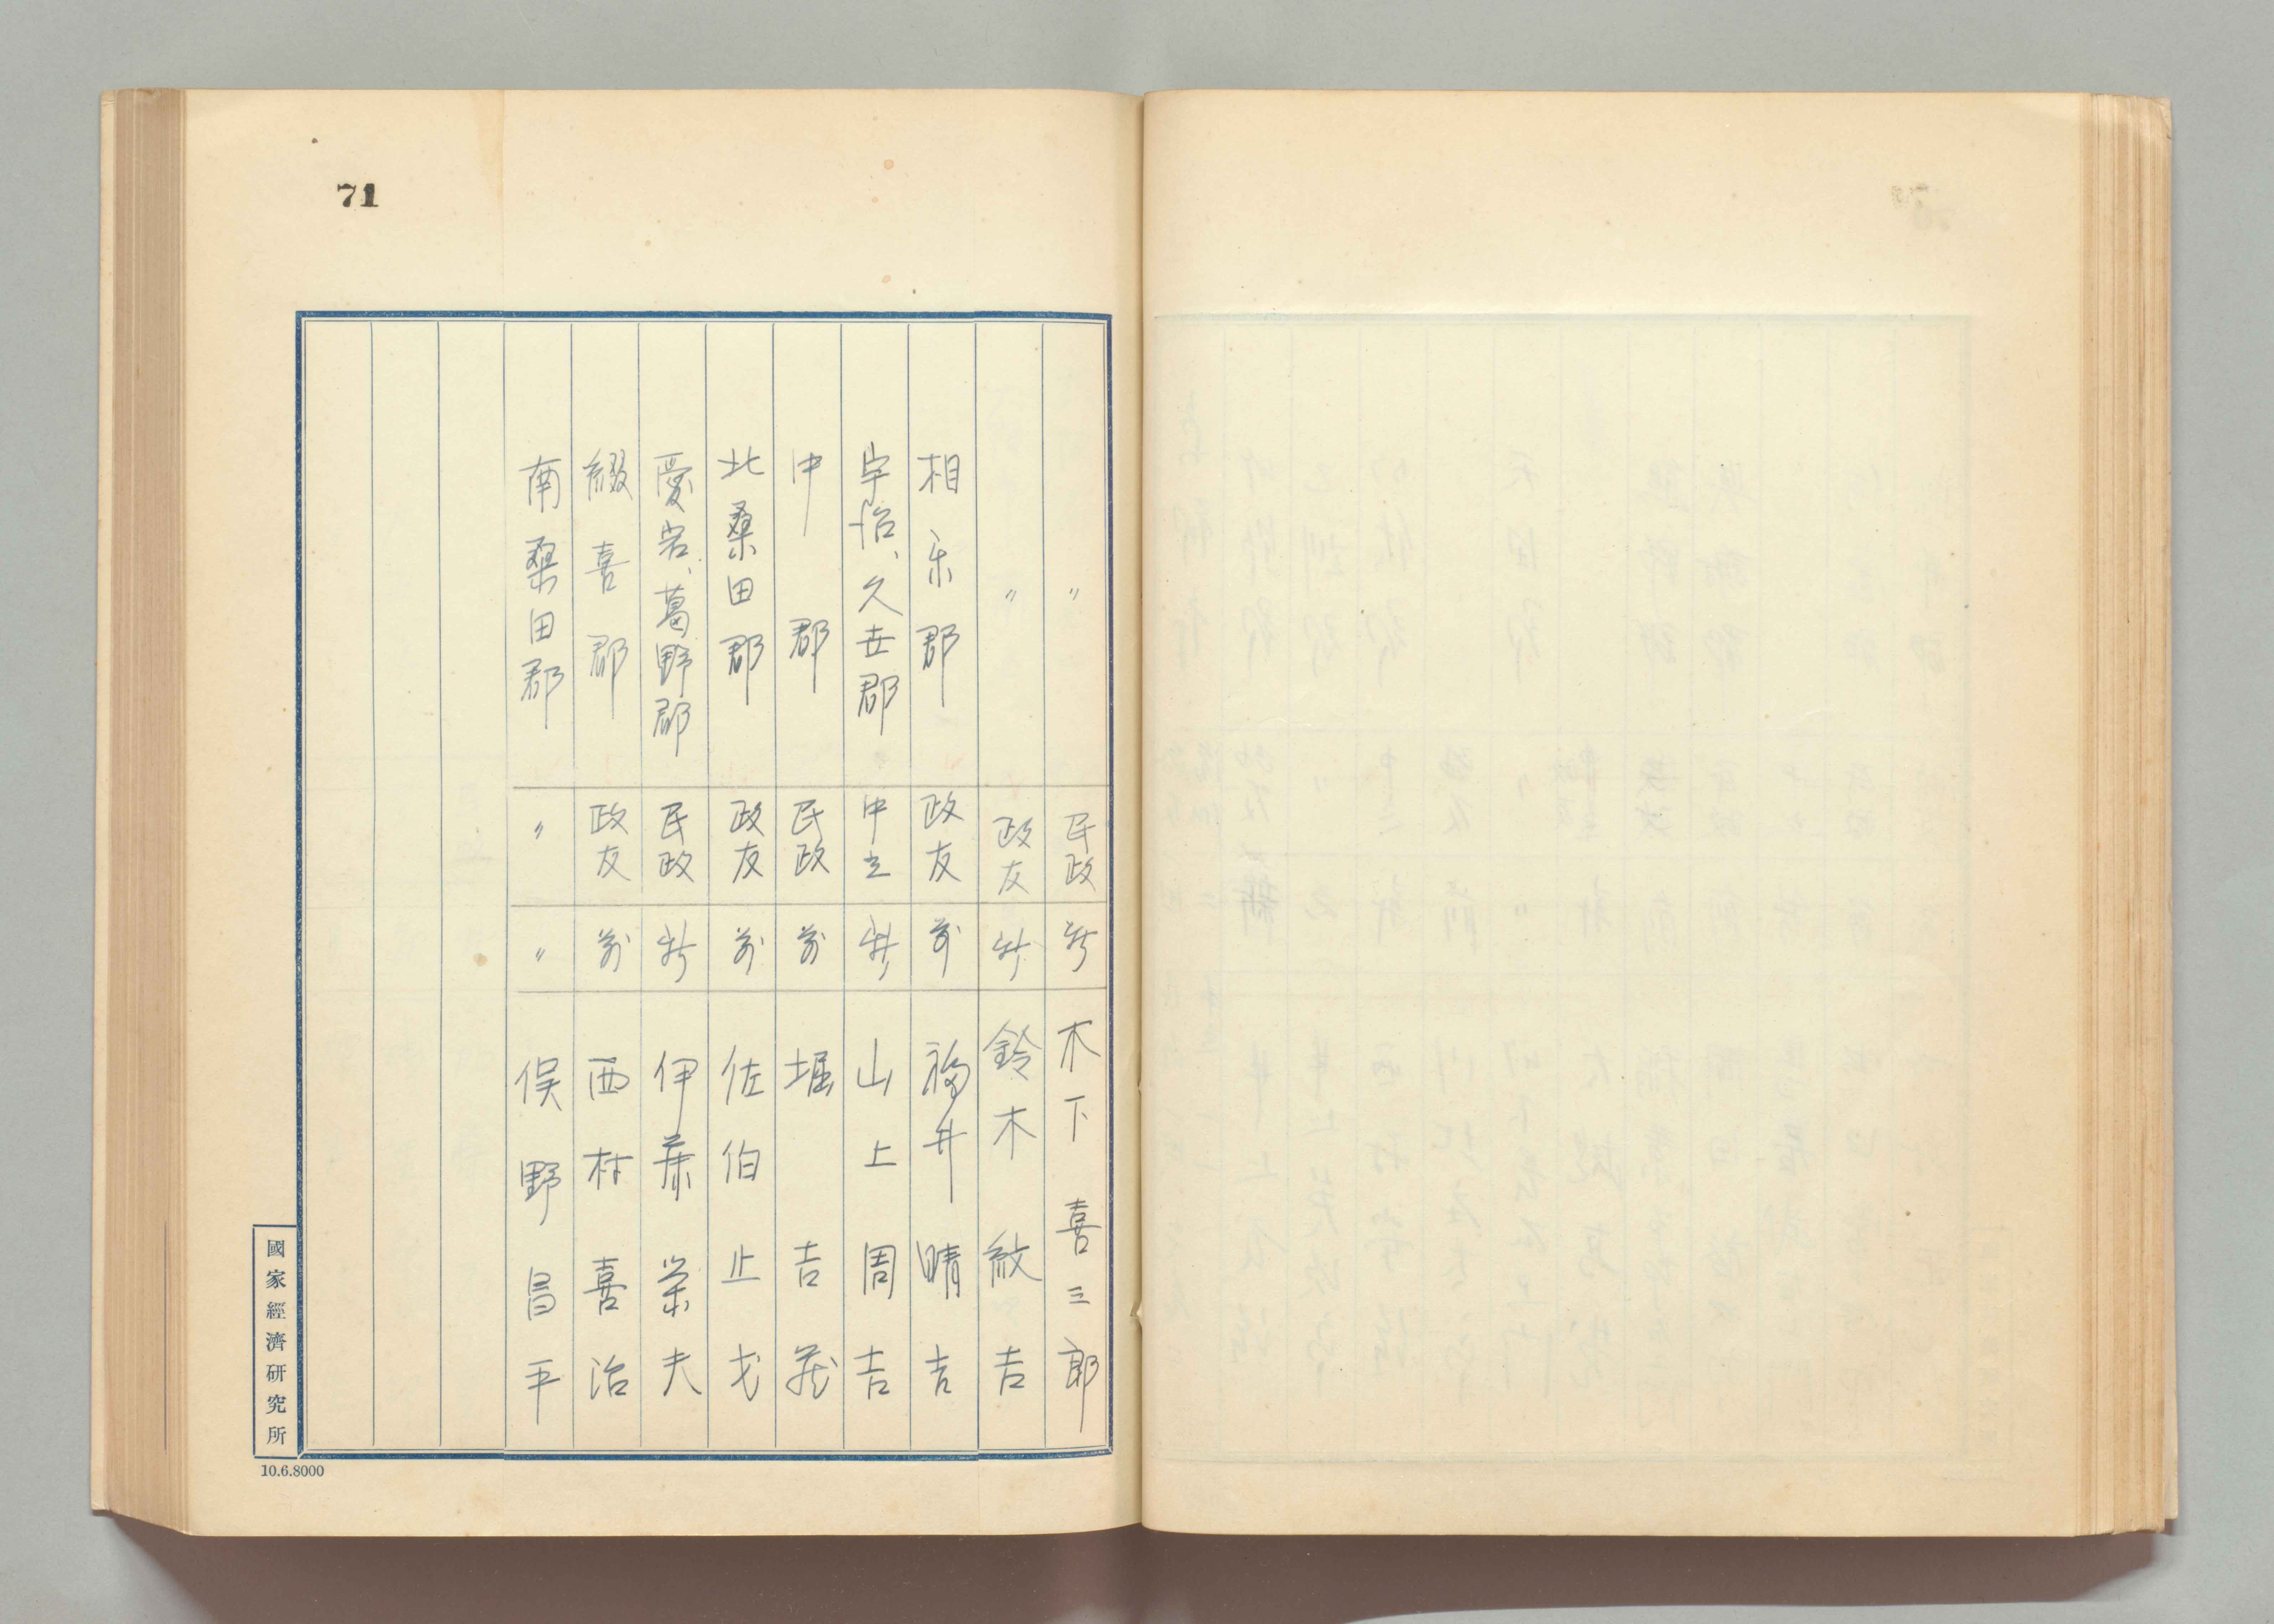 71
〃 民政 新 木下喜三郎
〃 政友 新 鈴木紋吉
相楽郡 政友 前 福井晴吉
宇治、久世郡 中立 新 山上周吉
中郡 民政 前 堀吉蔵
北桑田郡 政友 前 佐伯止戈
愛宕、葛野郡 民政 新 伊藤栄夫
綴喜郡 政友 前 西村喜治
南桑田郡 〃 〃 俣野昌平
國家經濟研究所
10.6.8000